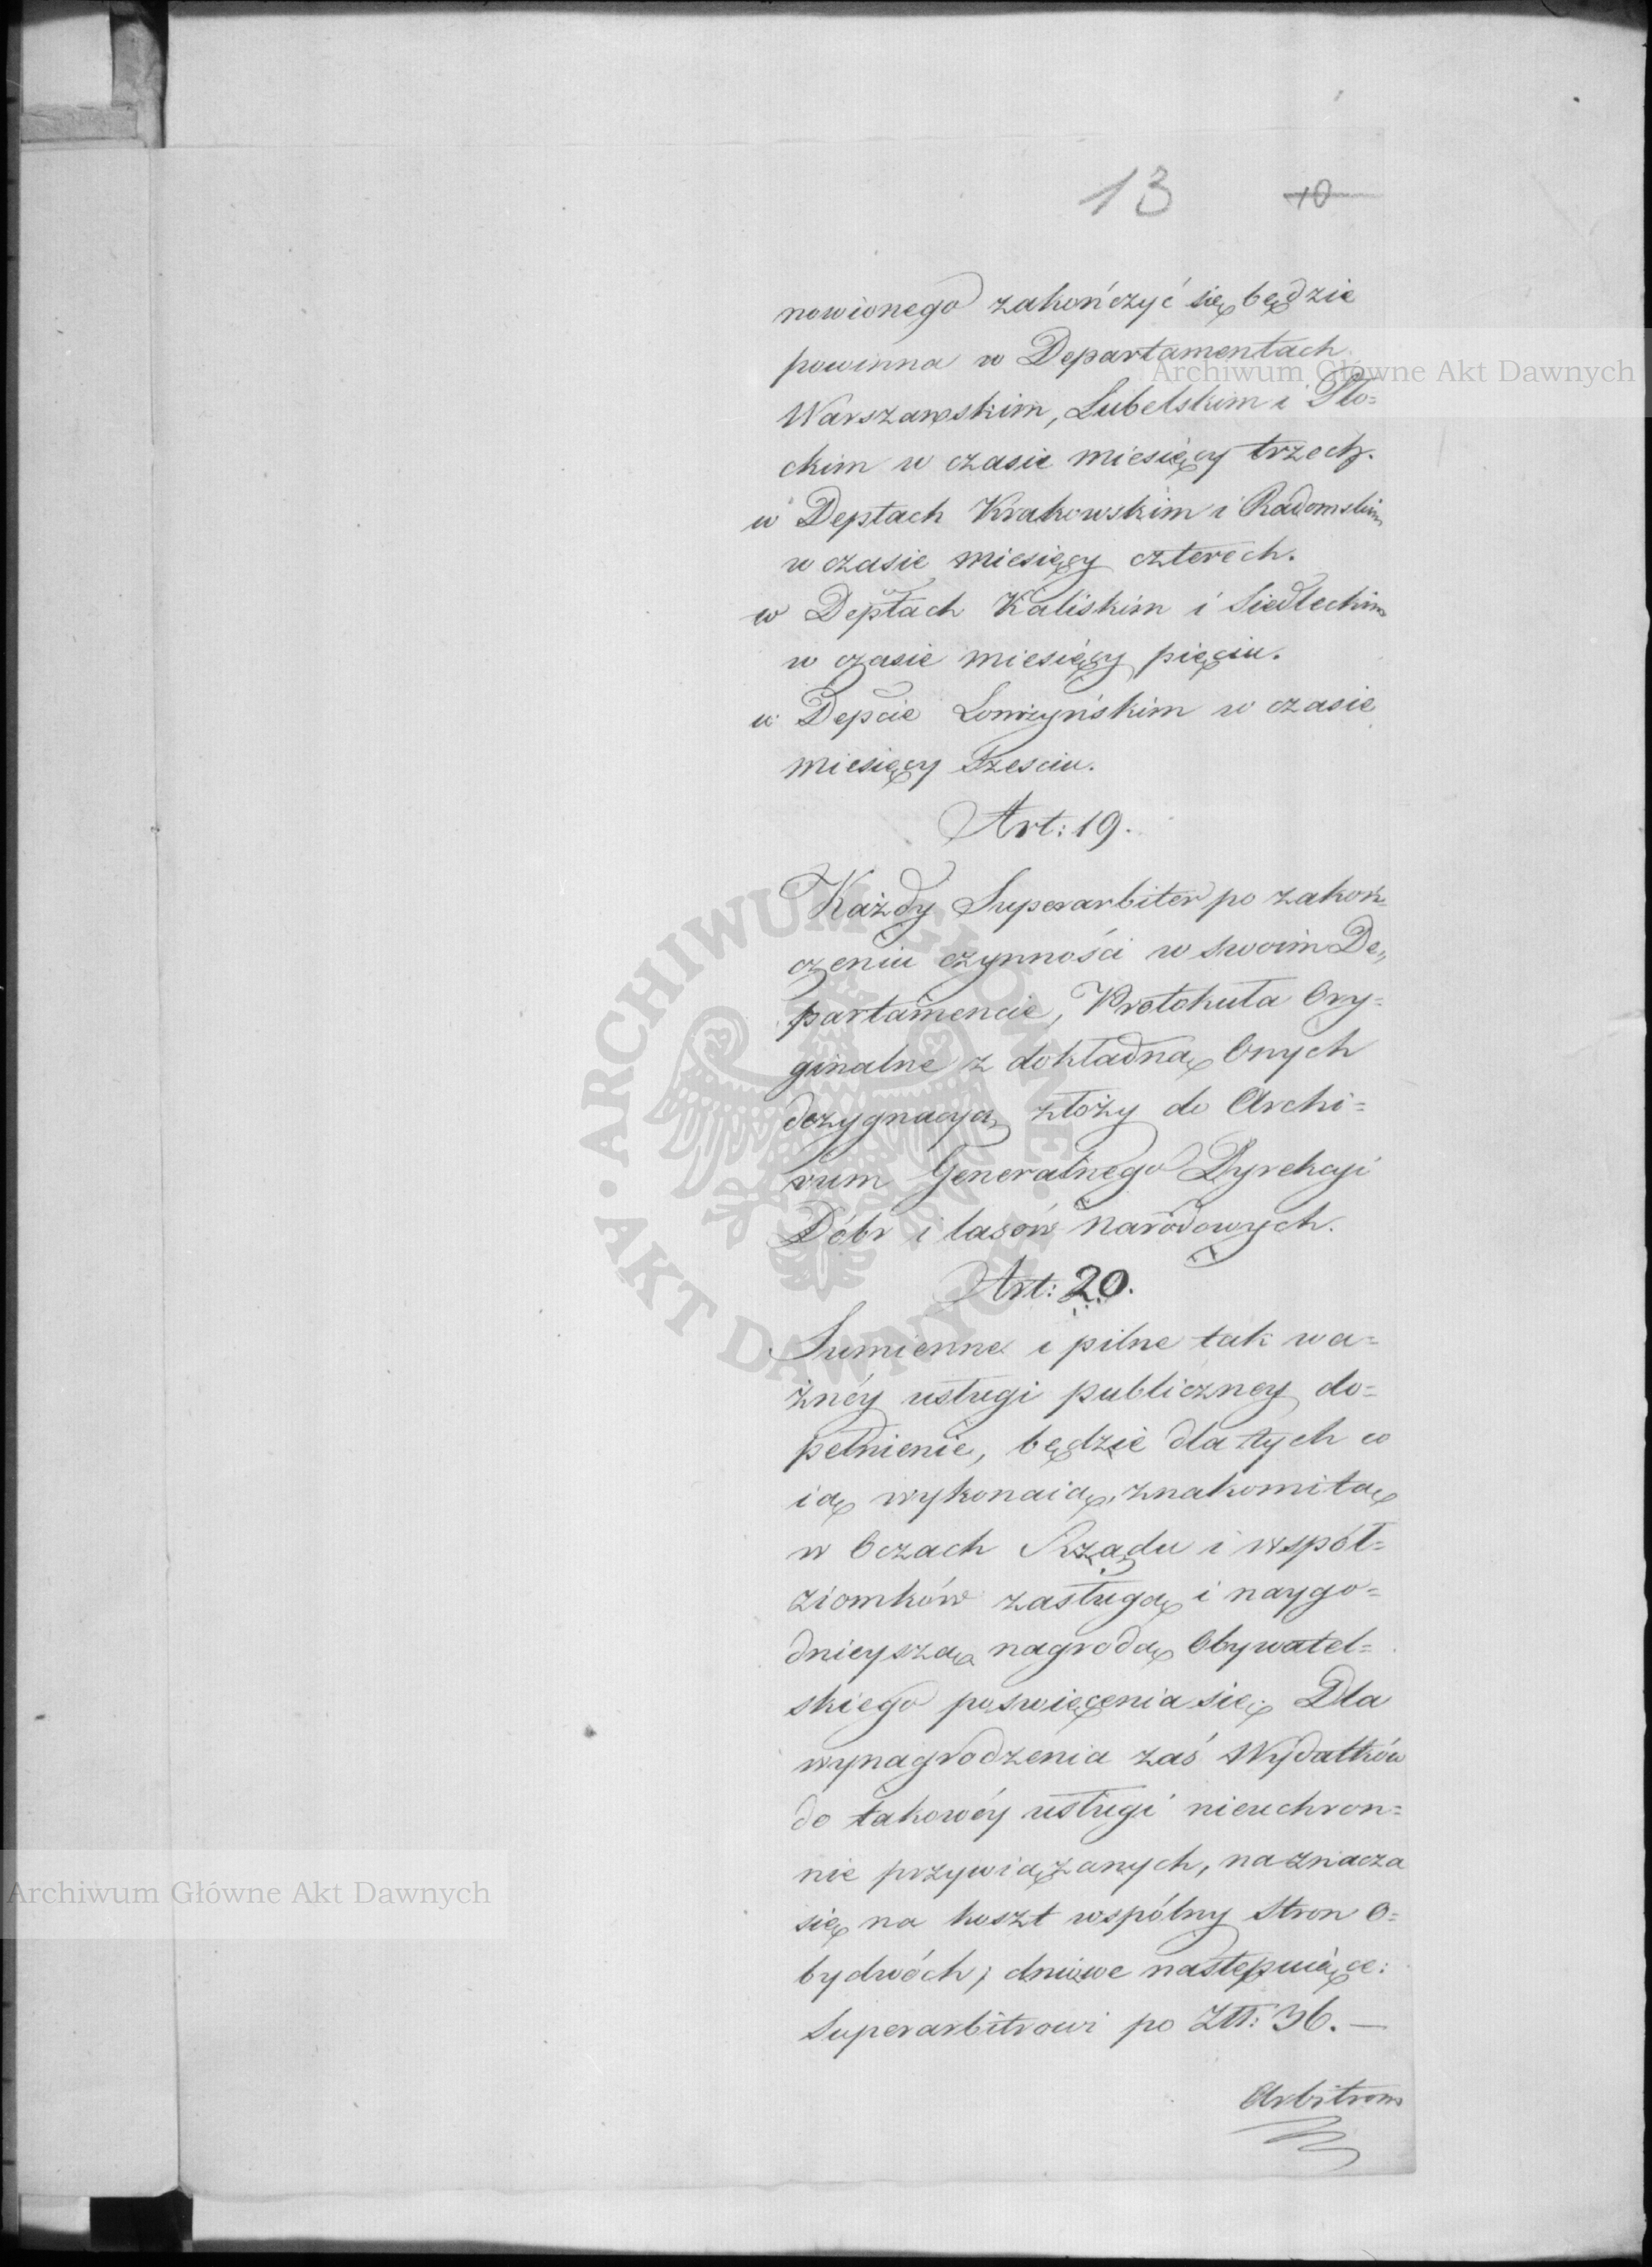 13 10
nowionego zakończyć się będzie
powinna w Departamentach
Archiwum Główne Akt Dawnych
Warszawskim, Lubelskim i Pło=
ckim w czasie miesięcy trzech.
w Deptach Krakowskim i Radomskim
w czasie miesięcy czterech.
w Deptach Kaliskim i Siedleckim
w czasie miesięcy pięciu.
w Depcie Łomżyńskim w czasie
miesięcy Szesciu.
Art: 19.
Każdy Superarbiter po zakoń=
czeniu czynności w swoim De„
partamencie, Protokuła Ory=
ginalne z dokładną Onych
dezygnacyą złoży do Archi=
vum Generalnego Dyrekcyi
Dóbr i lasów narodowych.
Art: 20.
Sumienne i pilne tak wa=
żnéy usługi publiczney do=
pełnienie, będzie dla tych co
ią wykonaią, znakomitą
w Oczach Rządu i współ=
ziomków zasługą i naygo=
dnieyszą nagrodą Obywatel=
skiego poswięcenia się. Dla
wynagrodzenia zaś Wydatków
do takowéy usługi nieuchron=
nie przywiązanych, naznacza
się na koszt wspólny Stron O=
bydwóch; dniowe następuiące:
Superarbitrowi po Złł: 36. —
Arbitrom
ARCHIWUM GŁÓWNE · AKT DAWNYCH ·
Archiwum Główne Akt Dawnych